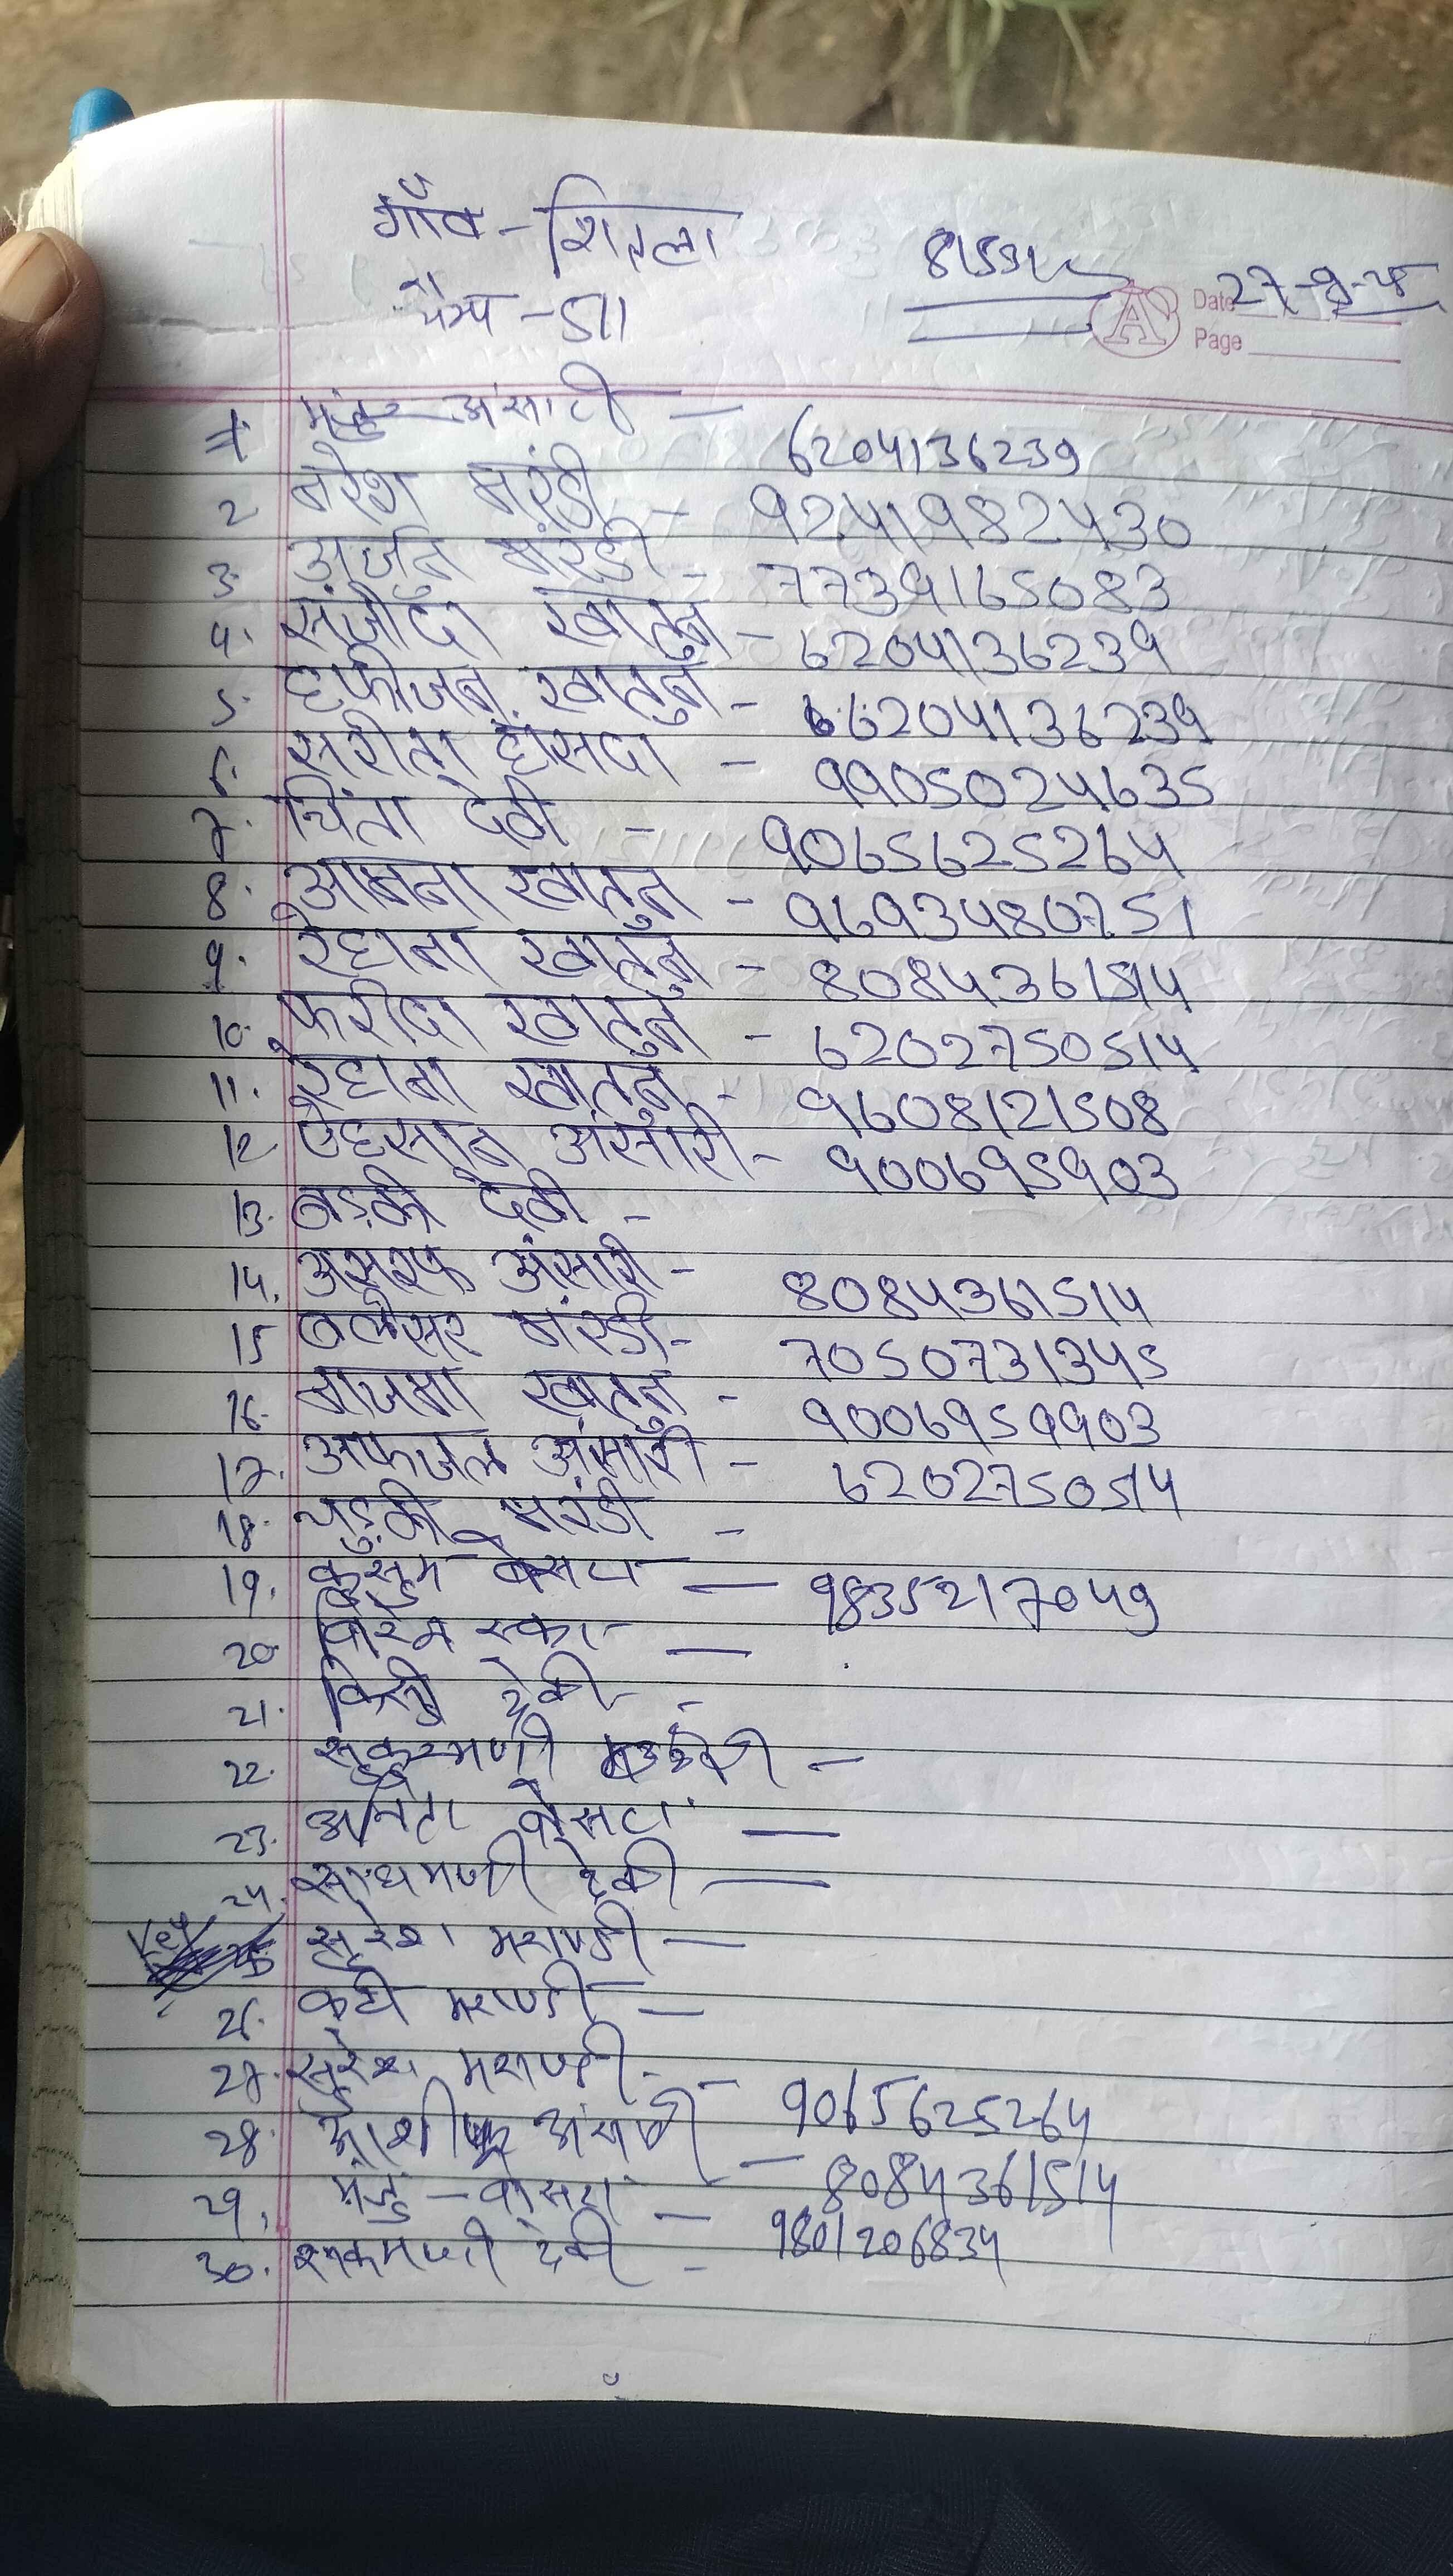 गाँव - शितला
कैम्प - 511
815312
Date 27-9-25
Page
1. अंसारी - 6204136239
2 नरेश मरंडी - 9241982430
3. अर्जुन मरंडी - 7739165083
4. संजीदा खातुन - 6204136239
5. हफीजन खातुन - 66204136239
6. सरीता हाँसदा - 9905024635
7. चिंता देवी - 9065625264
8. आमना खातुन - 9693480751
9. रेहाना खातुन - 8084361514
10. फरीदा खातुन - 6202750514
11. रेहाना खातुन - 9608121508
12. ऐहसान अंसारी - 900695903
13. बड़की देवी -
14. असरफ अंसारी - 8084361514
15 बलेसर मरंडी - 7050731345
16. नाजमा खातुन - 9006959903
17. अफजल अंसारी - 6202750514
18. चुड़की मरंडी -
19. कुसुम बेसरा - 9835217049
20 -
21. देवी -
22. -
23. अनिता बेसरा -
24. देवी -
25 सुरेश मराण्डी -
26. मराण्डी -
27. सुरेश मराण्डी - 9065625264
28. - 8084361514
29. मंजु - बेसरा - 9801206834
30. देवी -